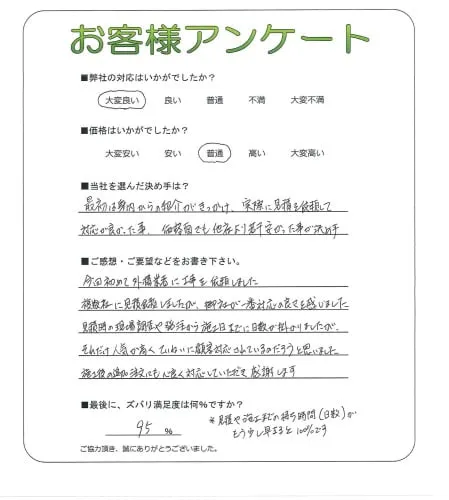 お客様アンケート
■弊社の対応はいかがでしたか？
大変良い 良い 普通 不満 大変不満
■価格はいかがでしたか？
大変安い 安い 普通 高い 大変高い
■当社を選んだ決め手は？
最初は身内からの紹介がきっかけ、実際に見積を依頼して
対応が良かった事、価格面でも他存より若干安かった事が決め手
■ご感想・ご要望などをお書き下さい。
今回初めて外構業者に工事を依頼しました
複数社に見積依頼しましたが、御社が一番対応の良さを感じました
見積時の現場調査や発注から施工日までに日数が掛かりましたが、
それだけ人気が高くていねいに顧客対応されているのだろうと思いました
施工後の追加注文にも心良く対応していただき感謝します
■最後に、ズバリ満足度は何％ですか？
95 ％
※見積や施工までの待ち時間(日数)が
もう少し早まると100%です
ご協力頂き、誠にありがとうございました。